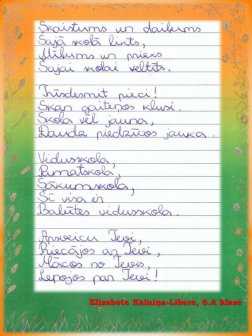 Skaistums un daiļums
Šajā skolā likts,
Mīlums un prieks
Šajai skolai veltīts.
Trīsdesmit pieci!
Skan gaiteņos klusi.
Skola vēl jauna,
Daudz piedzīvos jauka.
Vidusskola,
Pamatskola,
Sākumskola,
Šī visa ir
Baložu vidusskola.
Apsveicu Tevi,
Priecājos ar Tevi,
Mācos no Tevis,
Lepojos par Tevi!
Elizabete Kalniņa-Lībere, 6.A klase